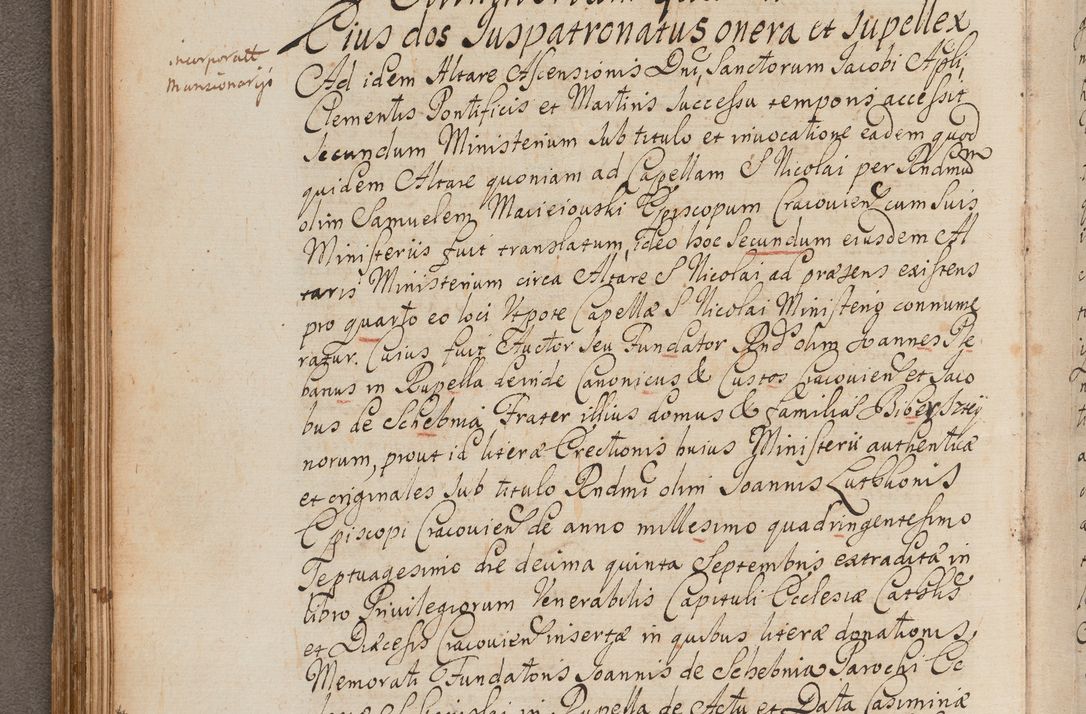 Eius dos Juspatronatus onera et supellex
incorporatt
Mansionarijs
Ad idem Altare Ascensionis Dni, Sanctorum Jacobi Apli,
Clementis Pontificis et Martiris successu temporis accessit
secundum Ministerium sub titulo et invocatione eadem quod
quidem Altare quoniam ad Capellam S Nicolai per Rndmum
olim Samuelem Macieiouski Episcopum Cracouien cum suis
Ministerijs fuit translatum, ideo hoc secundum eiusdem Al
taris Ministerium circa Altare S Nicolai ad præsens existens
pro quarto eo loci Utpote Capellæ S Nicolai Ministerio connume
ratur. Cuius fuit Auctor seu Fundator Rnds olim Joannes Ple
banus in Rupella deinde Canonicus & Custos Cracouien et Jaco
bus de Schebnia Frater illius domus & familiæ Biberszteÿ
norum, prout id literæ Erectionis huius Ministerii authenticæ
et originales sub titulo Rndmi olim Joannis Luthkonis
Episcopi Cracouien de anno millesimo quadringentesimo
Septuagesimo die decima quinta Septembris extraditæ in
libro Privilegiorum Venerabilis Capituli Ecclesiæ Cathlis
et Diæcesis Cracouien insertæ in quibus literæ donationis
Memorati Fundatoris Joannis de Schebnia Parochi Ec
in Rupella de Actu et Data Casimiriæ